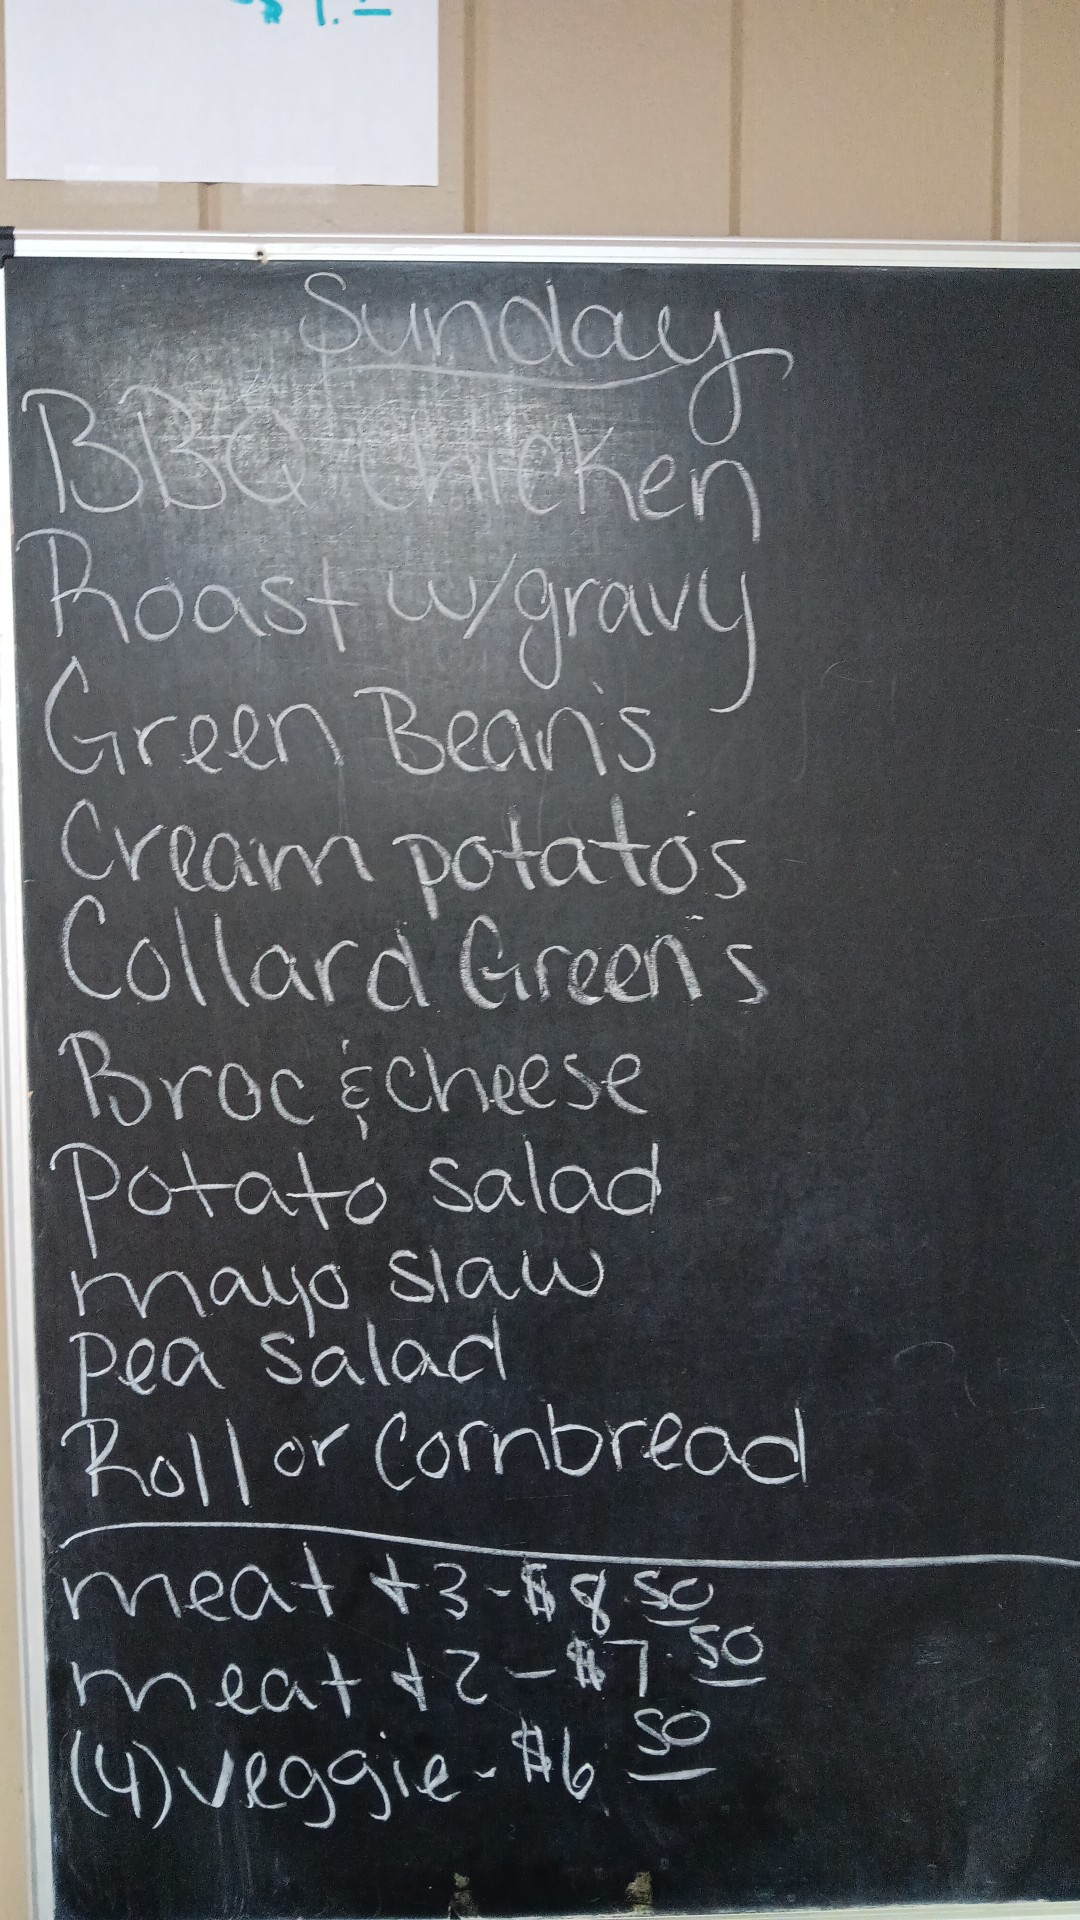 $1.
Sunday
BBQ chicken
Roast w/gravy
Green Bean's
Cream potato's
Collard Green's
Broc & cheese
Potato salad
mayo slaw
pea salad
Roll or Cornbread
meat +3-$8.50
meat +2-$7.50
(4) veggie-$6 50